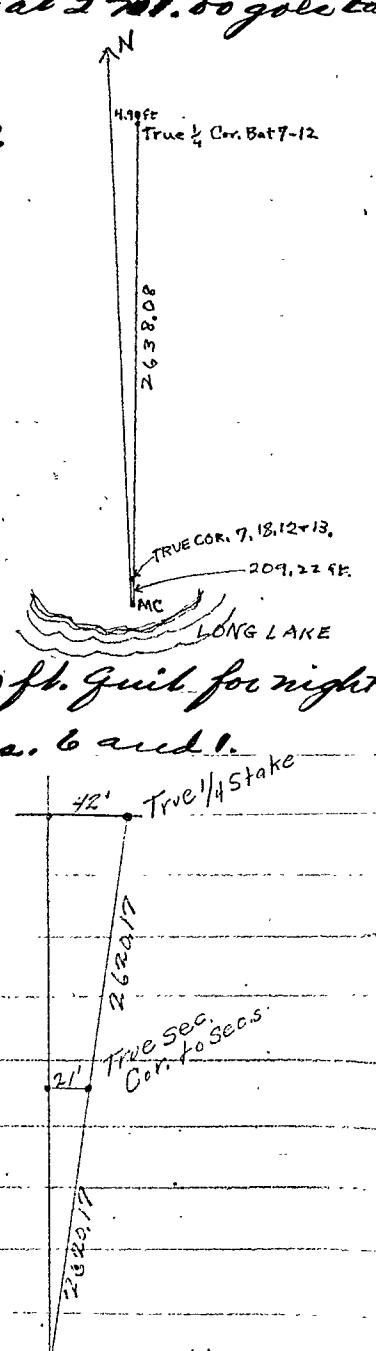 N
4.90 ft
True 1/4 Cor. Bat 7-12
2638.08
TRUE COR. 7, 18, 12 + 13.
209.22 ft.
MC
LONG LAKE
ft. Quit for night
6 and 1.
42'
True 1/4 Stake
2620.17
True Sec.
Cor. to Secs.
21'
2620.17